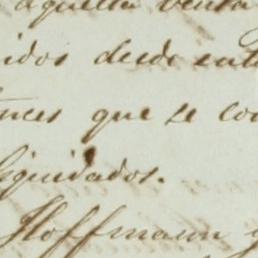 aquella venta
idos desde ent
nces que se co
liquidados.
Hoffmann y